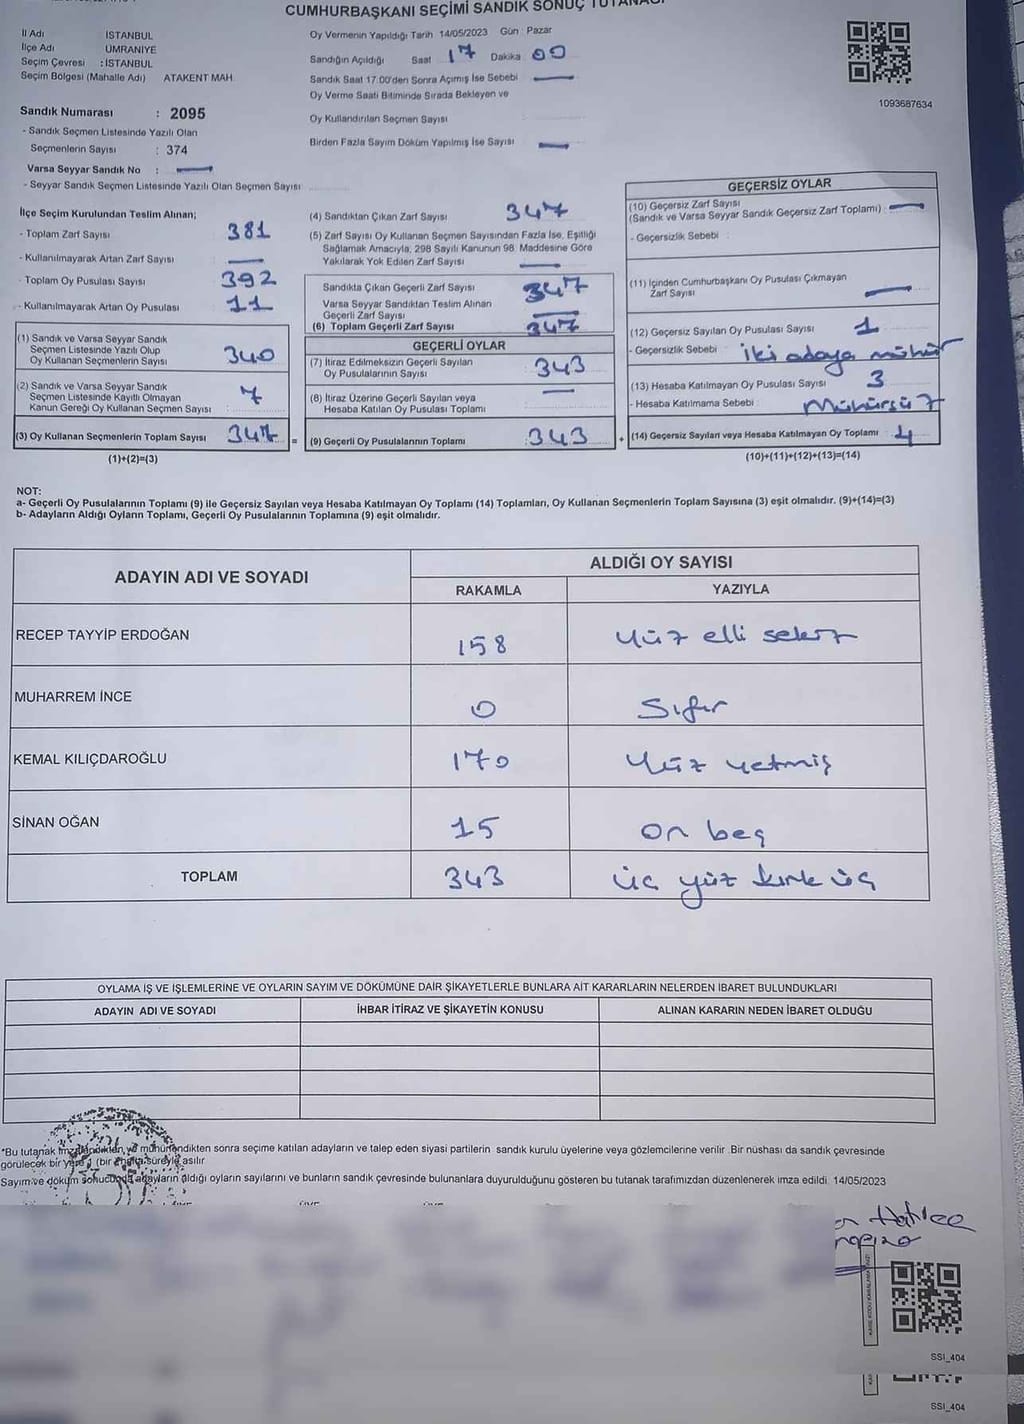 CUMHURBAŞKANI SEÇİMİ SANDIK SONUÇ TUTANAĞI
İl Adı İSTANBUL
İlçe Adı ÜMRANİYE
Seçim Çevresi : İSTANBUL
Seçim Bölgesi (Mahalle Adı) ATAKENT MAH.
Sandık Numarası : 2095
- Sandık Seçmen Listesinde Yazılı Olan
Seçmenlerin Sayısı : 374
Varsa Seyyar Sandık No : —
- Seyyar Sandık Seçmen Listesinde Yazılı Olan Seçmen Sayısı
Oy Vermenin Yapıldığı Tarih 14/05/2023 Gün : Pazar
Sandığın Açıldığı Saat 17 Dakika 00
Sandık Saat 17:00'den Sonra Açımış İse Sebebi —
Oy Verme Saati Bitiminde Sırada Bekleyen ve
Oy Kullandırılan Seçmen Sayısı
Birden Fazla Sayım Döküm Yapılmış İse Sayısı —
1093687634
İlçe Seçim Kurulundan Teslim Alınan;
- Toplam Zarf Sayısı 381
- Kullanılmayarak Artan Zarf Sayısı —
- Toplam Oy Pusulası Sayısı 392
- Kullanılmayarak Artan Oy Pusulası 11
(1) Sandık ve Varsa Seyyar Sandık
Seçmen Listesinde Yazılı Olup
Oy Kullanan Seçmenlerin Sayısı 340
(2) Sandık ve Varsa Seyyar Sandık
Seçmen Listesinde Kayıtlı Olmayan
Kanun Gereği Oy Kullanan Seçmen Sayısı 7
(3) Oy Kullanan Seçmenlerin Toplam Sayısı 347 =
(1)+(2)=(3)
(4) Sandıktan Çıkan Zarf Sayısı 347
(5) Zarf Sayısı Oy Kullanan Seçmen Sayısından Fazla İse, Eşitliği
Sağlamak Amacıyla, 298 Sayılı Kanunun 98. Maddesine Göre
Yakılarak Yok Edilen Zarf Sayısı —
Sandıkta Çıkan Geçerli Zarf Sayısı 347
Varsa Seyyar Sandıktan Teslim Alınan
Geçerli Zarf Sayısı —
(6) Toplam Geçerli Zarf Sayısı 347
GEÇERLİ OYLAR
(7) İtiraz Edilmeksizin Geçerli Sayılan
Oy Pusulalarının Sayısı 343
(8) İtiraz Üzerine Geçerli Sayılan veya
Hesaba Katılan Oy Pusulası Toplamı —
(9) Geçerli Oy Pusulalarının Toplamı 343 +
GEÇERSİZ OYLAR
(10) Geçersiz Zarf Sayısı
(Sandık ve Varsa Seyyar Sandık Geçersiz Zarf Toplamı) —
- Geçersizlik Sebebi :
(11) İçinden Cumhurbaşkanı Oy Pusulası Çıkmayan
Zarf Sayısı —
(12) Geçersiz Sayılan Oy Pusulası Sayısı 1
- Geçersizlik Sebebi iki adaya mühür
(13) Hesaba Katılmayan Oy Pusulası Sayısı 3
- Hesaba Katılmama Sebebi : Mühürsüz
(14) Geçersiz Sayılan veya Hesaba Katılmayan Oy Toplamı 4
(10)+(11)+(12)+(13)=(14)
NOT:
a- Geçerli Oy Pusulalarının Toplamı (9) ile Geçersiz Sayılan veya Hesaba Katılmayan Oy Toplamı (14) Toplamları, Oy Kullanan Seçmenlerin Toplam Sayısına (3) eşit olmalıdır. (9)+(14)=(3)
b- Adayların Aldığı Oyların Toplamı, Geçerli Oy Pusulalarının Toplamına (9) eşit olmalıdır.
ADAYIN ADI VE SOYADI ALDIĞI OY SAYISI
RAKAMLA YAZIYLA
RECEP TAYYİP ERDOĞAN 158 Yüz elli sekiz
MUHARREM İNCE 0 Sıfır
KEMAL KILIÇDAROĞLU 170 Yüz yetmiş
SİNAN OĞAN 15 on beş
TOPLAM 343 üç yüz kırk üç
OYLAMA İŞ VE İŞLEMLERİNE VE OYLARIN SAYIM VE DÖKÜMÜNE DAİR ŞİKAYETLERLE BUNLARA AİT KARARLARIN NELERDEN İBARET BULUNDUKLARI
ADAYIN ADI VE SOYADI İHBAR İTİRAZ VE ŞİKAYETİN KONUSU ALINAN KARARIN NEDEN İBARET OLDUĞU
*Bu tutanak imzalandıktan ve mühürlendikten sonra seçime katılan adayların ve talep eden siyasi partilerin sandık kurulu üyelerine veya gözlemcilerine verilir. Bir nüshası da sandık çevresinde
görülecek bir yere (bir hafta süreyle) asılır
Sayım ve döküm sonucunda adayların aldığı oyların sayılarını ve bunların sandık çevresinde bulunanlara duyurulduğunu gösteren bu tutanak tarafımızdan düzenlenerek imza edildi. 14/05/2023
Hatice
SSI_404
SSI_404